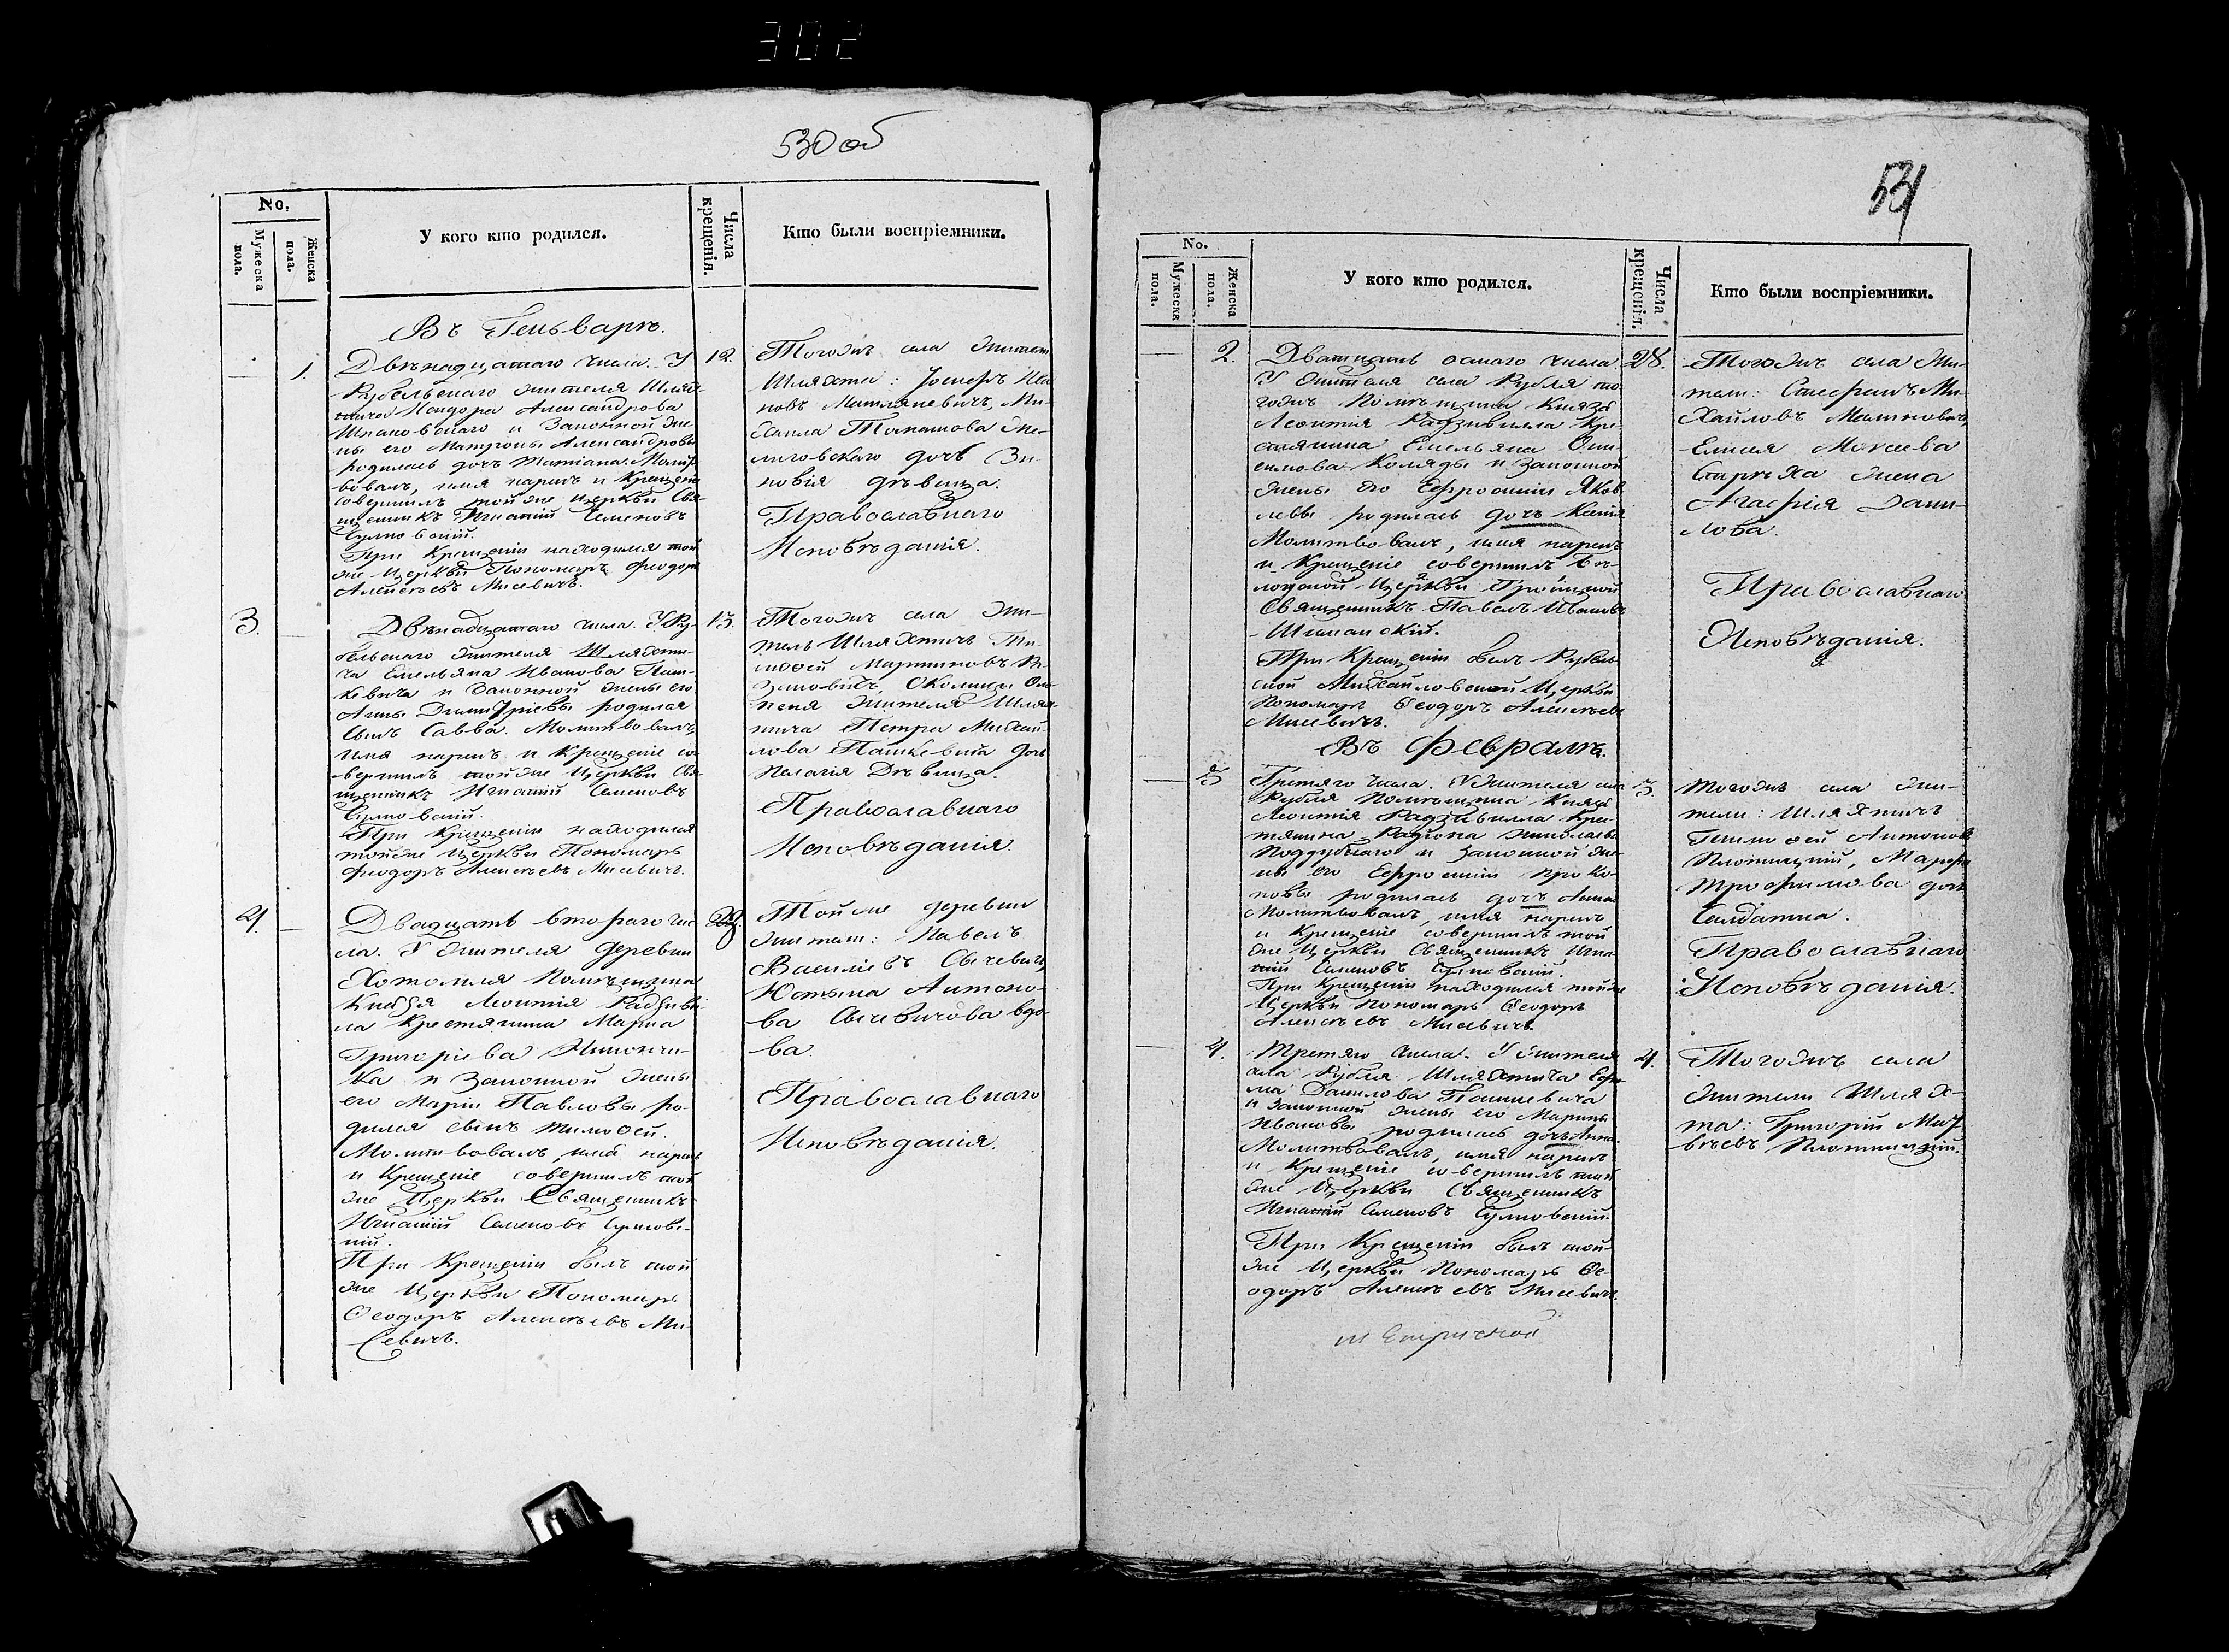 302
530 об
No.
Мужеска пола.
Женска пола.
У кого кто родился.
Числа крещенія.
Кто были воспріемники.
Въ Генварѣ.
1.
Двѣнадцатаго числа. У
Рубельскаго жителя Шлях
тича Исидора Александрова
Шпаковскаго и Законной же
ны его Матроны Александровы
родилась дочь Татіана. Молит
вовалъ, имя нарекъ и Крещеніе
совершилъ той же Церкви Свя
щенникъ Игнатій Семеновъ
При Крещеніи находился той
же Церкви Пономарь Феодоръ
Алексѣевъ Мисевичъ.
12.
Тогожъ села жители
Шляхта: Іосифъ Ива
новъ
хаила Томашова
дочь Зи-
новія дѣвица.
Православнаго
Исповѣданія.
3.
Двѣнадцатаго числа. У Ру-
бельскаго жителя Шляхти-
ча Емельяна Иванова Паш-
кевича и Законной жены его
Анны Димитріевы родился
Сынъ Савва. Молитвовалъ,
имя нарекъ и Крещеніе со-
вершилъ тойже Церкви Свя-
щенникъ Игнатій Семеновъ
При Крещеніи находился
тойже Церкви Пономарь
Феодоръ Алексѣевъ Мисевичъ.
13.
Тогожъ села жи-
тель Шляхтичъ Ти-
мофей Мартиновъ
Околицы
жителя Шлях
тича Петра Михай-
лова Пашкевича дочь
Пелагія Дѣвица.
Православнаго
Исповѣданія.
4.
Двадцать втораго чис
ла. У жителя деревни
Хотомля Помѣщика
Князя Леонтія Радзиви
ла Крестянина Марка
Григоріева
ка и Законной жены
его Маріи Павловы ро-
дился сынъ Тимофей.
Молитвовалъ, имя нарекъ
и Крещеніе совершилъ той
же Церкви Священникъ
Игнатій Семеновъ
При Крещеніи былъ той
же Церкви Пономарь
Феодоръ Алексѣевъ Ми-
севичъ.
Той же деревни
жители: Павелъ
Василіевъ Сычевичъ,
Юстына Антоно-
ва Сычевичова вдо-
ва.
Православнаго
Исповѣданія.
531
No.
Мужеска пола.
Женска пола.
У кого кто родился.
Числа крещенія.
Кто были воспріемники.
2.
Дватцать осмаго числа.
У жителя села Рубля то
гожъ Помѣщика Князя
Леонтія Радзивила Кре-
стянина Емельяна Они-
симова Коляды и Законной
жены его Ефросиніи Яков
левы родилась дочь Ксенія
Молитвовалъ, имя нарекъ
и Крещеніе совершилъ
Церкви Троицкой
Священникъ Павелъ Ивановъ
При Крещеніи былъ Рубель-
ской Михайловской Церкви
Пономарь Феодоръ Алексѣевъ
Мисевичъ.
28.
Тогожъ села Жи-
тели: Стефанъ Ми-
хайловъ
Елисея Моксеева
жена
Агафія Дани-
лова.
Православнаго
Исповѣданія.
Въ Февралѣ.
3
Третяго числа. У жителя села
Рубля Помѣщика Князя
Леонтія Радзивилла Крес-
тянина Радіона Николаева
Поддубнаго и Законной же-
ны его Ефросиніи Проко-
повы родилась дочь Анна
Молитвовалъ, имя нарекъ
и Крещеніе совершилъ той
же Церкви Священникъ Игна-
тій Семеновъ
При Крещеніи находился тойже
Церкви Пономарь Феодоръ
Алексѣевъ Мисевичъ.
3.
Тогожъ села жи-
тели: Шляхтичъ
Тимофей Антоновъ
Плотницкій, Марфа
Трофимова дочь
Салдатка.
Православнаго
Исповѣданія.
4.
Третяго числа. У жителя
села Рубля Шляхтича Ефре
ма Данилова Пашкевича
и Законной жены его Марины
Ивановы родилась дочь Анна.
Молитвовалъ, имя нарекъ
и Крещеніе совершилъ той
же Церкви Священникъ
Игнатій Семеновъ
При Крещеніи былъ той-
же Церкви Пономарь Фе-
одоръ Алексѣевъ Мисевичъ.
4.
Тогожъ села
жители Шлях-
та: Григорій Мат-
вѣевъ Плотницкій.